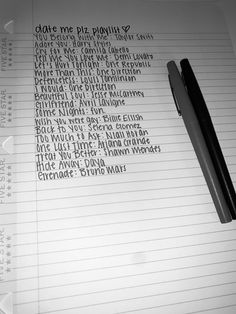 date me plz playlist ♡
You Belong With Me: Taylor Swift
Adore You: Harry Styles
Cry for Me: Camila Cabello
Tell Me You Love Me: Demi Lovato
Let's Hurt Tonight: One Republic
More Than This: One Direction
Defenceless: Louis Tomlinson
I Would: One Direction
Beautiful Soul: Jesse McCartney
Girlfriend: Avril Lavigne
Some Nights: Fun.
Wish You were gay: Billie Eilish
Back to You: Selena Gomez
Too Much to Ask: Niall Horan
One Last Time: Ariana Grande
Treat You Better: Shawn Mendes
Hide Away: Daya
Grenade: Bruno Mars
FIVE STAR
FIVE STAR
FIVE STAR
FIVE STAR